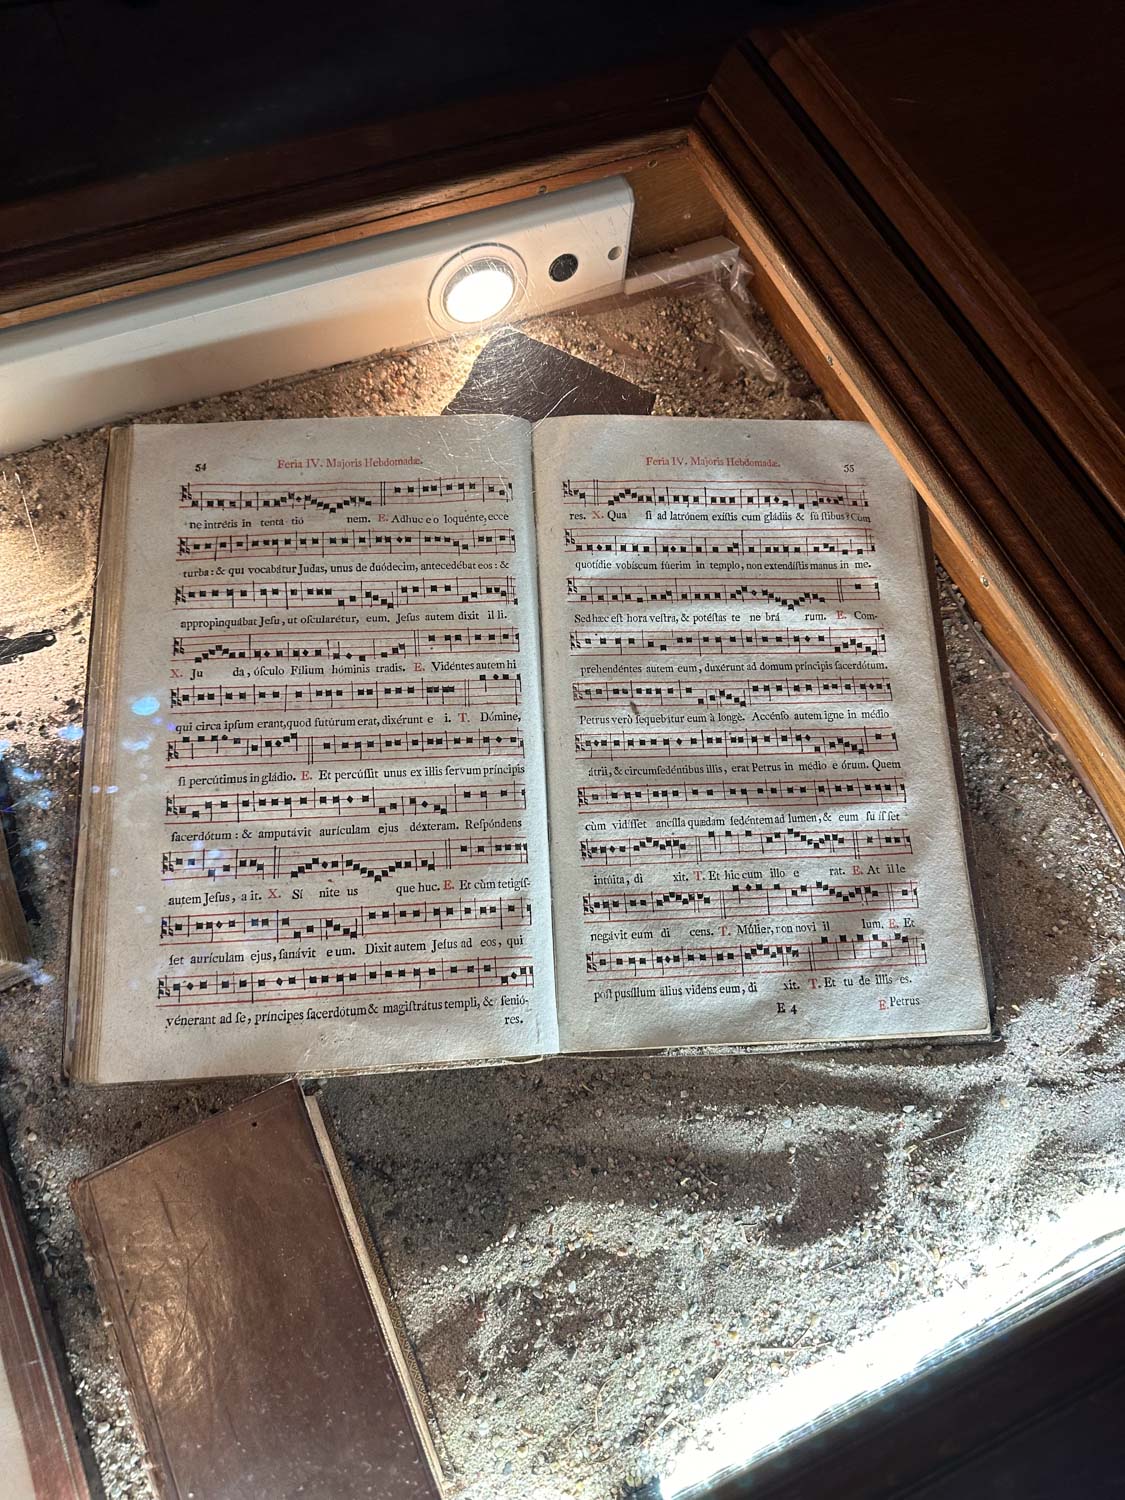 54
Feria IV. Majoris Hebdomadæ.
ne intrétis in tenta tió nem. E. Adhuc e o loquénte, ecce
turba : & qui vocabátur Judas, unus de duódecim, antecedébat eos : &
appropinquábat Jeſu, ut oſcularétur, eum. Jeſus autem dixit il li.
X. Ju da, óſculo Fílium hóminis tradis. E. Vidéntes autem hi
qui circa ipſum erant, quod futúrum erat, dixérunt e i. T. Dómine,
ſi percútimus in gládio. E. Et percúſſit unus ex illis ſervum príncipis
ſacerdótum : & amputávit aurículam ejus déxteram. Reſpóndens
autem Jeſus, a it. X. Sí nite us que huc. E. Et cùm tetigíſ-
ſet aurículam ejus, ſanávit e um. Dixit autem Jeſus ad eos, qui
vénerant ad ſe, príncipes ſacerdótum & magiſtrátus templi, & ſenió-
res.
Feria IV. Majoris Hebdomadæ.
55
res. X. Qua ſi ad latrónem exíſtis cum gládiis & fú ſtibus? Cùm
quotídie vobíscum fúerim in templo, non extendíſtis manus in me.
Sed hæc eſt hora veſtra, & potéſtas te ne brá rum. E. Com-
prehendéntes autem eum, duxérunt ad domum príncipis ſacerdótum.
Petrus verò ſequebátur eum à longè. Accénſo autem igne in médio
átrii, & circumſedéntibus illis, erat Petrus in médio e órum. Quem
cùm vidíſſet ancílla quædam ſedéntem ad lumen, & eum fu íſ ſet
intúita, di xit. T. Et hic cum illo e rat. E. At il le
negávit eum di cens. T. Múlier, non novi il lum. E. Et
poſt puſíllum álius videns eum, di xit. T. Et tu de illis es.
E 4
E. Petrus